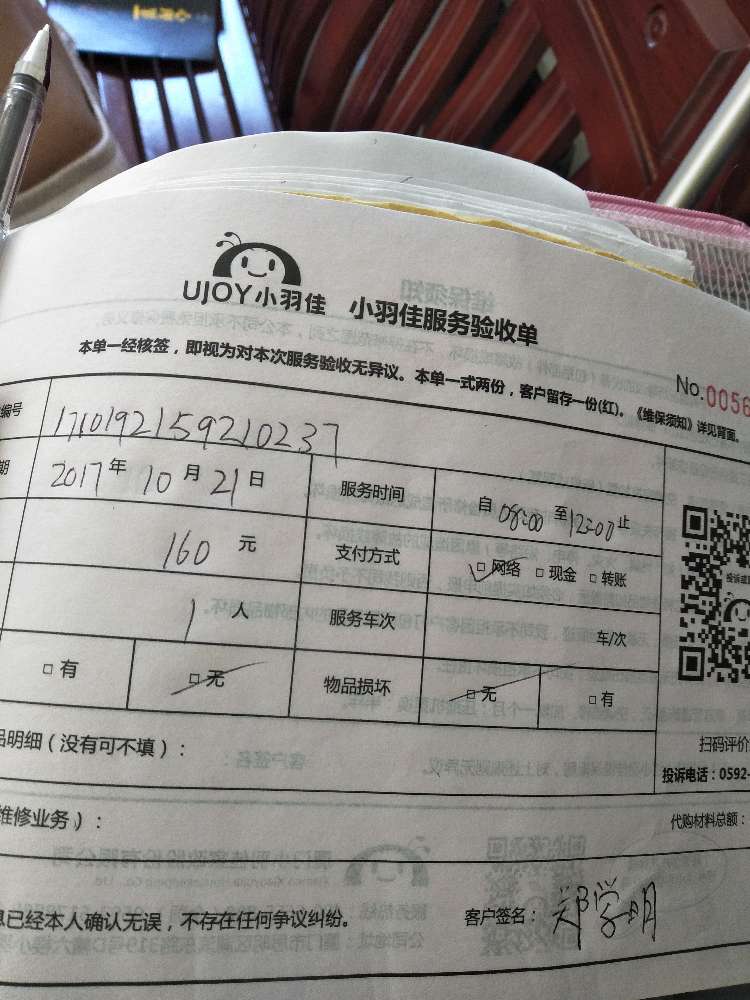 UJOY小羽佳 小羽佳服务验收单
本单一经核签，即视为对本次服务验收无异议。本单一式两份，客户留存一份(红)。《维保须知》详见背面。
No.0056
编号 1710192159210237
期 2017年10月21日 服务时间 自08:00至12:00止
160元 支付方式 □网络 □现金 □转账
1人 服务车次 车/次
□有 □无 物品损坏 □无 □有
扫码评价
品明细（没有可不填）：
投诉电话：0592-
维修业务）： 代购材料总额：
息已经本人确认无误，不存在任何争议纠纷。 客户签名：郑学明